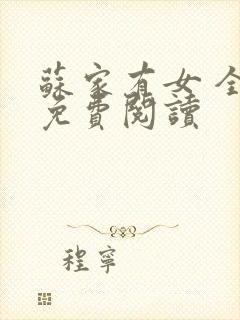 蘇家有女 全
免費閱讀
程寧